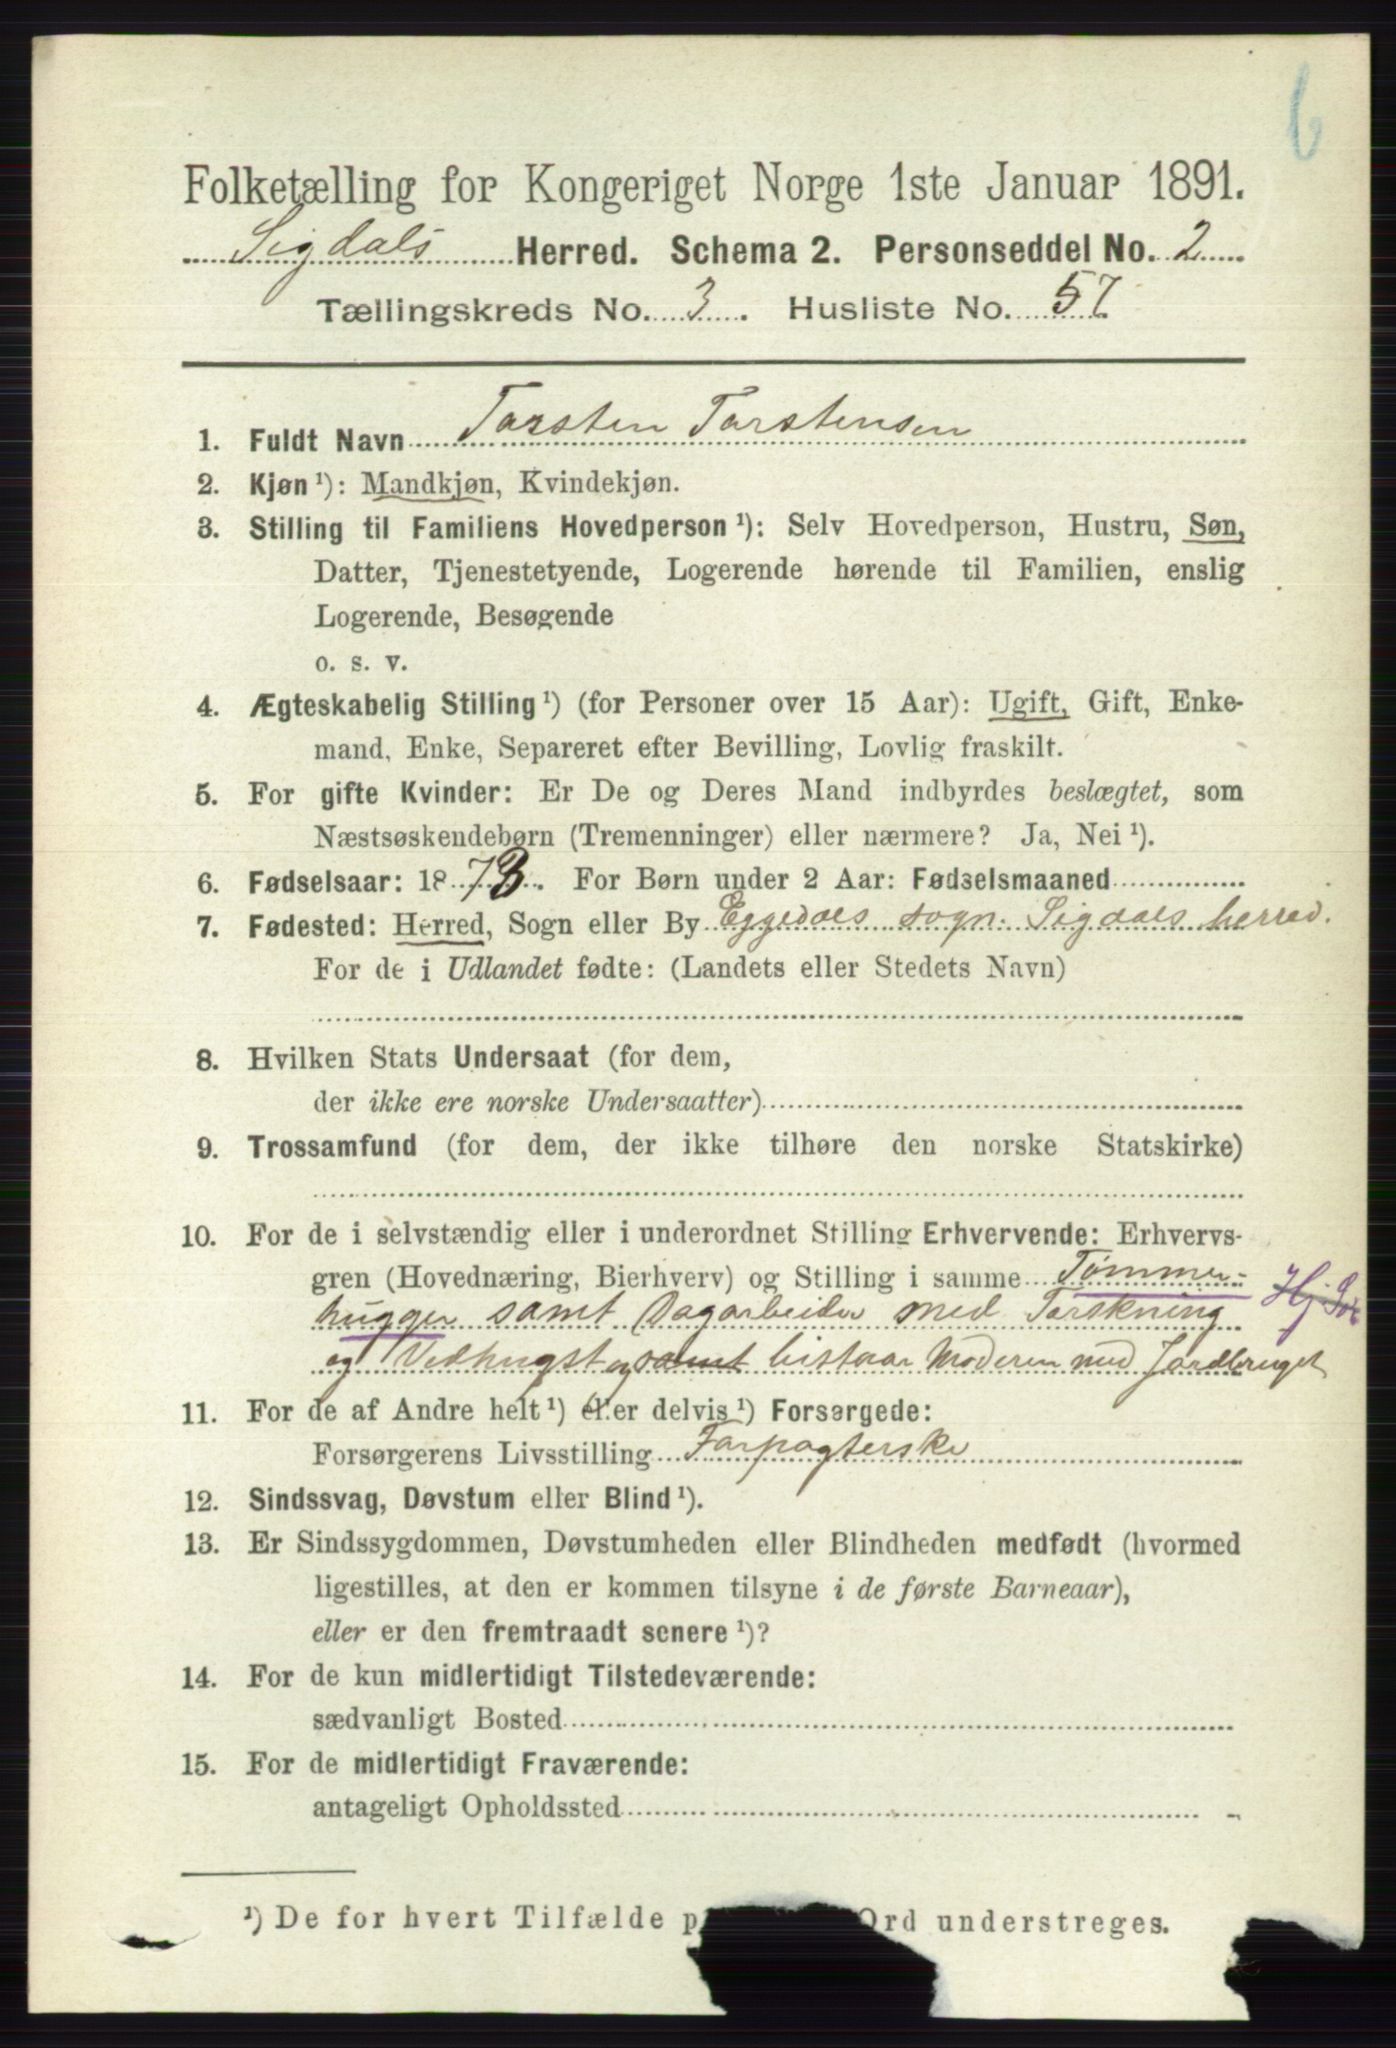 6
Folketælling for Kongeriget Norge 1ste Januar 1891.
Sigdals Herred. Schema 2. Personseddel No. 2
Tællingskreds No. 3. Husliste No. 57.
1. Fuldt Navn Torsten Torstensen
2. Kjøn ¹): Mandkjøn, Kvindekjøn.
3. Stilling til Familiens Hovedperson ¹): Selv Hovedperson, Hustru, Søn,
Datter, Tjenestetyende, Logerende hørende til Familien, enslig
Logerende, Besøgende
o. s. v.
4. Ægteskabelig Stilling ¹) (for Personer over 15 Aar): Ugift, Gift, Enke-
mand, Enke, Separeret efter Bevilling, Lovlig fraskilt.
5. For gifte Kvinder: Er De og Deres Mand indbyrdes beslægtet, som
Næstsøskendebørn (Tremenninger) eller nærmere? Ja, Nei ¹).
6. Fødselsaar: 1873. For Børn under 2 Aar: Fødselsmaaned
7. Fødested: Herred, Sogn eller By Eggedals sogn. Sigdals herred.
For de i Udlandet fødte: (Landets eller Stedets Navn)
8. Hvilken Stats Undersaat (for dem,
der ikke ere norske Undersaatter)
9. Trossamfund (for dem, der ikke tilhøre den norske Statskirke)
10. For de i selvstændig eller i underordnet Stilling Erhvervende: Erhvervs-
gren (Hovednæring, Bierhverv) og Stilling i samme Tømmer-
hugger samt Dagarbeider med Tørskning
og Vedhugst og samt bistaar Moderen med Jordbruget
11. For de af Andre helt ¹) eller delvis ¹) Forsørgede:
Forsørgerens Livsstilling Forpagterske
12. Sindssvag, Døvstum eller Blind ¹).
13. Er Sindssygdommen, Døvstumheden eller Blindheden medfødt (hvormed
ligestilles, at den er kommen tilsyne i de første Barneaar),
eller er den fremtraadt senere ¹)?
14. For de kun midlertidigt Tilstedeværende:
sædvanligt Bosted
15. For de midlertidigt Fraværende:
antageligt Opholdssted
¹) De for hvert Tilfælde p Ord understreges.